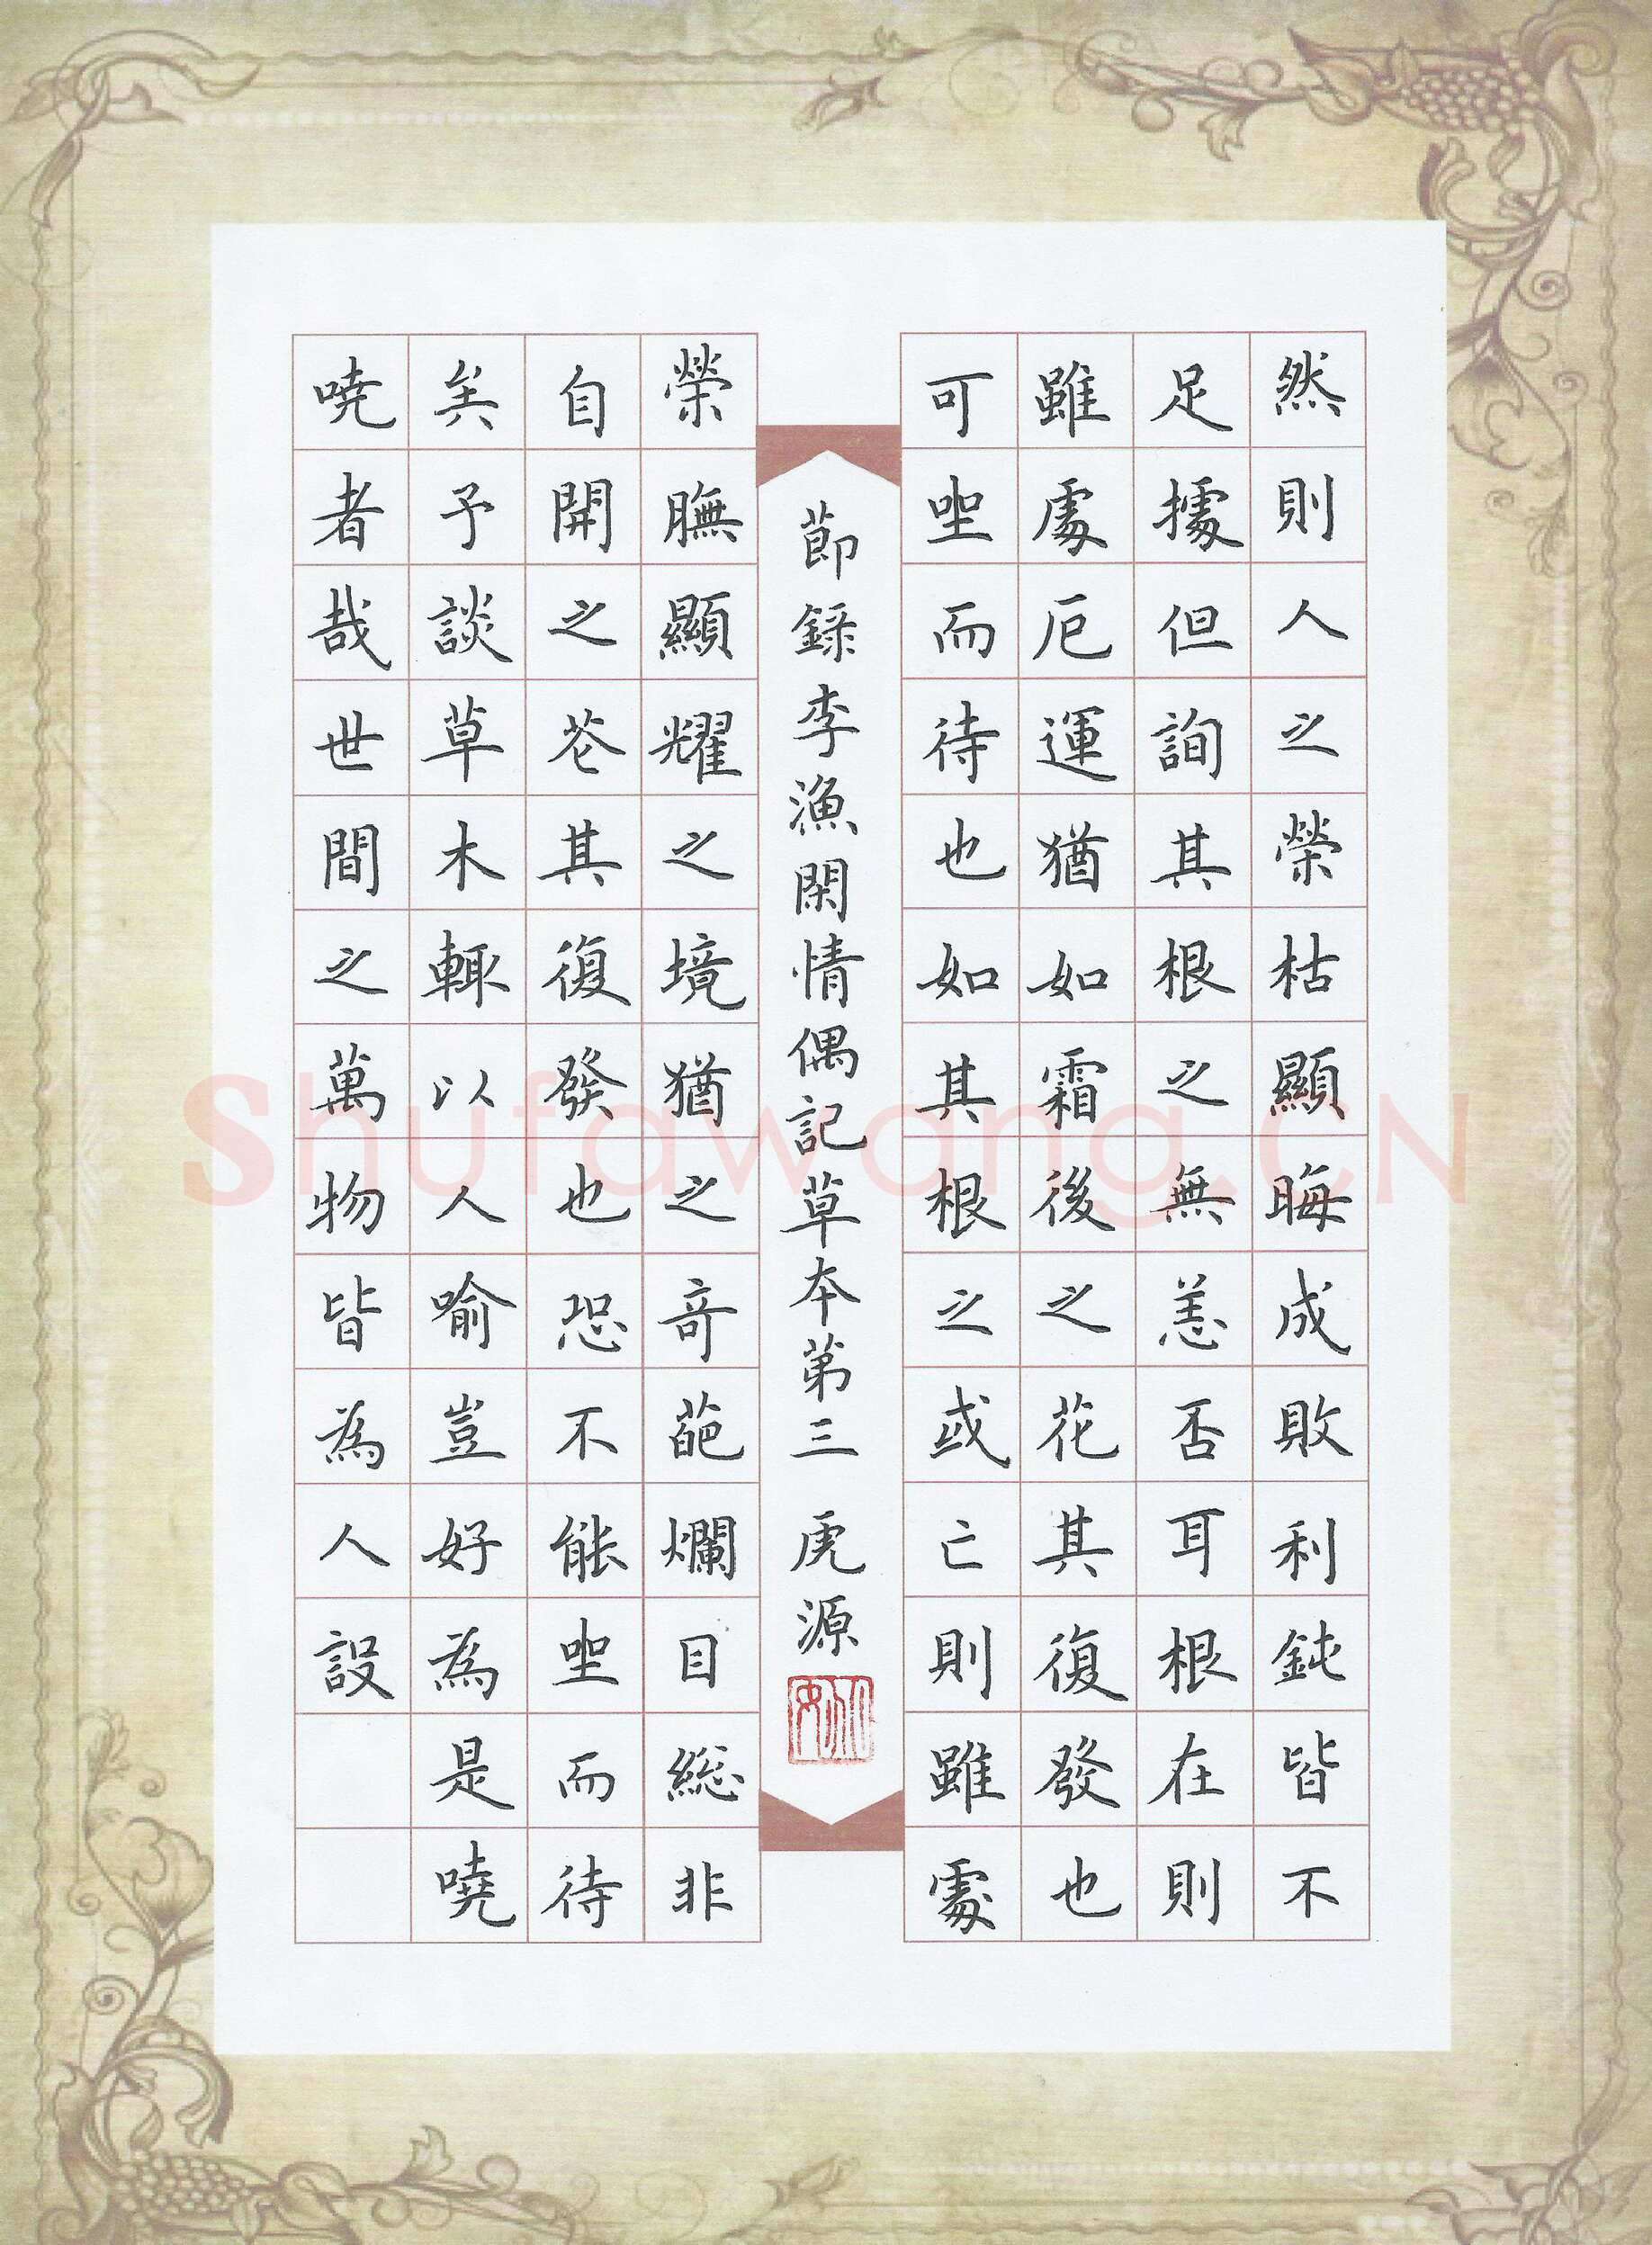 然則人之榮枯顯晦成敗利鈍皆不
足據但詢其根之無恙否耳根在則
雖處厄運猶如霜後之花其復發也
可坐而待也如其根之或亡則雖處
節錄李漁閑情偶記草本第三 虎源
榮膴顯耀之境猶之奇葩爛目総非
自開之花其復發也恐不能坐而待
矣予談草木輒以人喻豈好為是嘵
嘵者哉世間之萬物皆為人設
Shufawang.CN